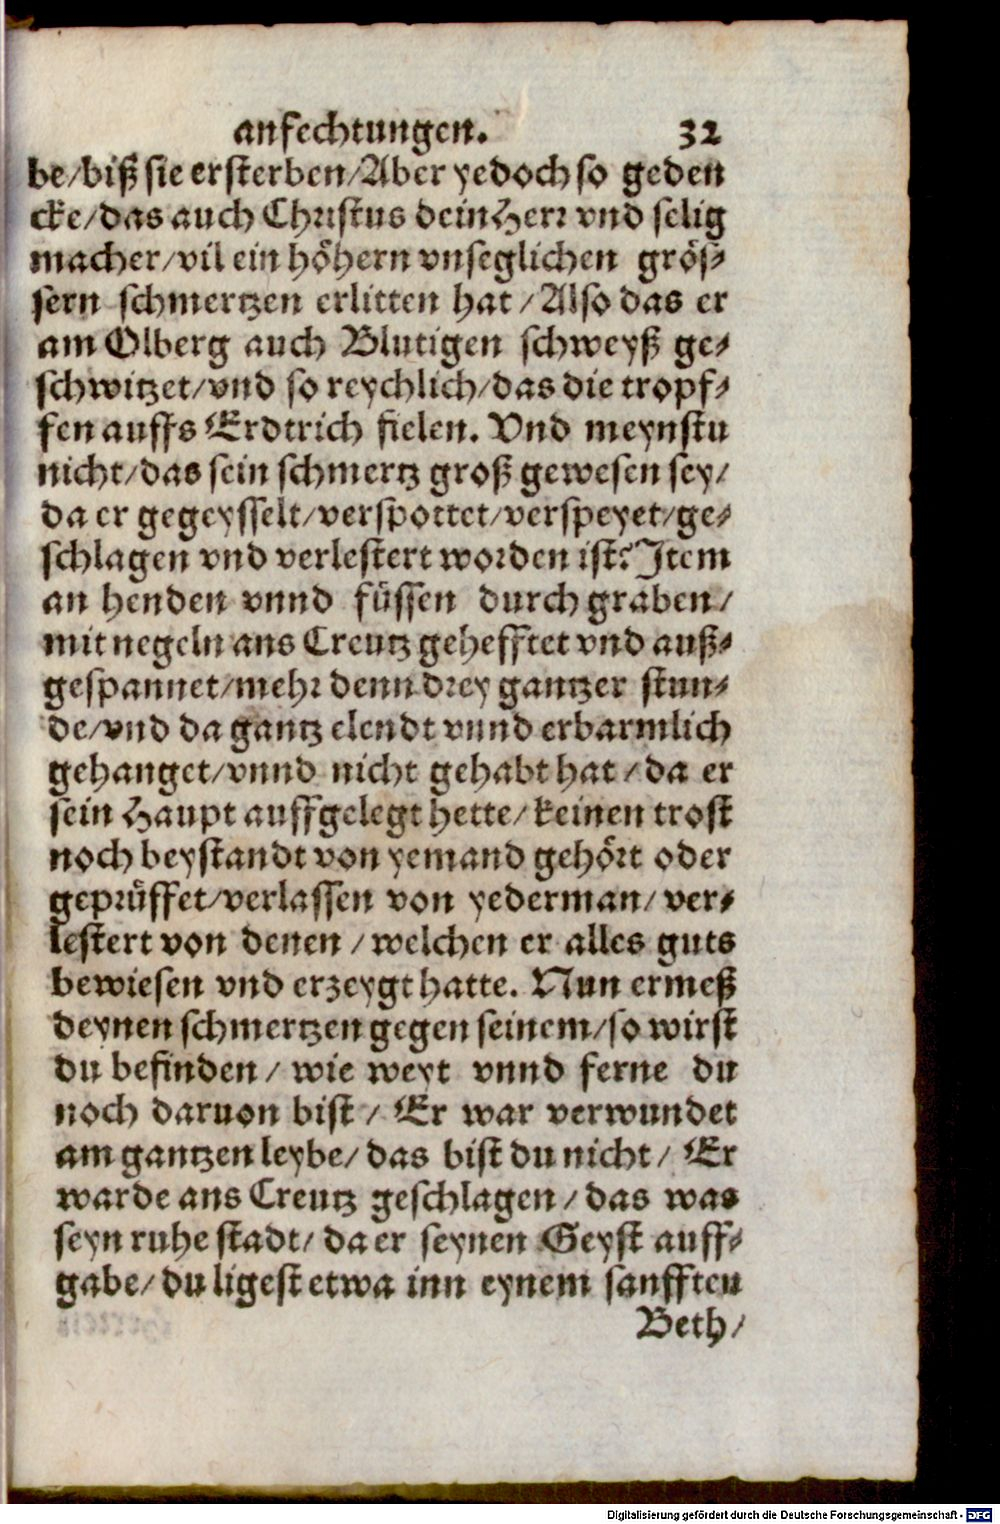 anfechtungen. 32
be/biß sie ersterben/Aber yedoch so geden
cke/das auch Christus dein Herr vnd selig
macher/vil ein höhern vnseglichen grös-
sern schmertzen erlitten hat/Also das er
am Olberg auch Blutigen schweyß ge-
schwitzet/vnd so reychlich/das die tropf-
fen auffs Erdtrich fielen. Vnd meynstu
nicht/das sein schmertz groß gewesen sey/
da er gegeysselt/verspottet/verspeyet/ge-
schlagen vnd verlestert worden ist? Item
an henden vnnd füssen durch graben/
mit negeln ans Creutz gehefftet vnd auß-
gespannet/mehr denn drey gantzer stun-
de/vnd da gantz elendt vnnd erbarmlich
gehanget/vnnd nicht gehabt hat/da er
sein Haupt auffgelegt hette/keinen trost
noch beystandt von yemand gehört oder
geprüffet/verlassen von yederman/ver-
lestert von denen/welchen er alles guts
bewiesen vnd erzeygt hatte. Nun ermeß
deynen schmertzen gegen seinem/so wirst
du befinden/wie weyt vnnd ferne du
noch daruon bist/Er war verwundet
am gantzen leybe/das bist du nicht/Er
warde ans Creutz geschlagen/das was
seyn ruhe stadt/da er seynen Geyst auff-
gabe/du ligest etwa inn eynem sanfften
Beth/
Digitalisierung gefördert durch die Deutsche Forschungsgemeinschaft - DFG